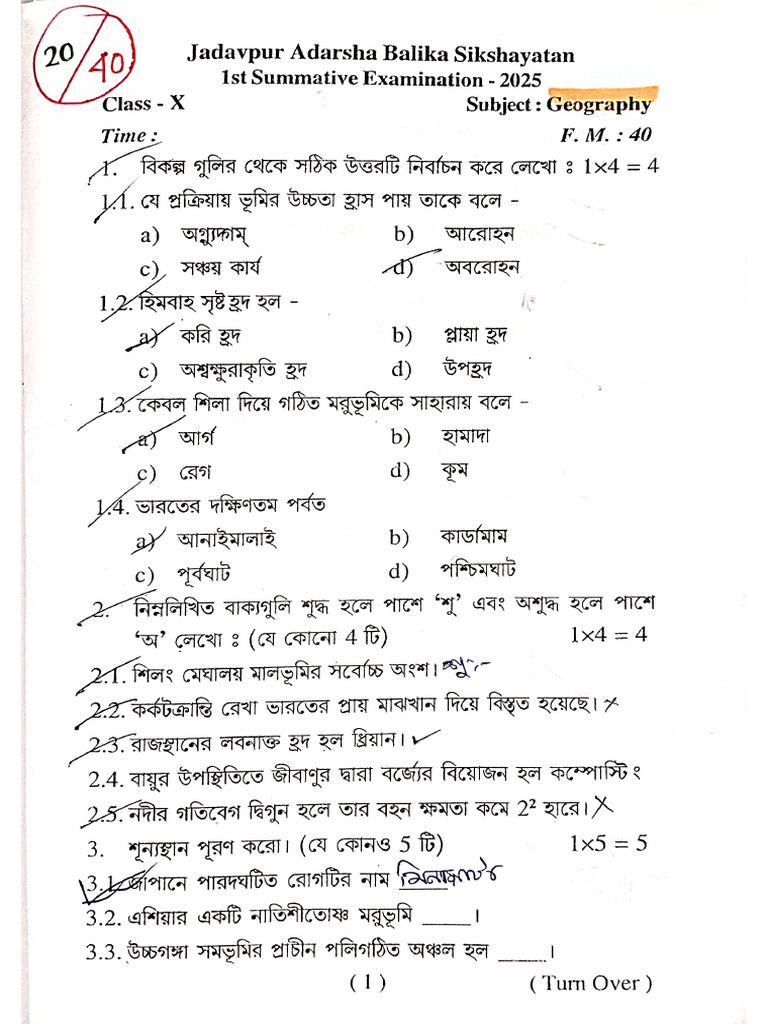 20/40
Jadavpur Adarsha Balika Sikshayatan
1st Summative Examination - 2025
Class - X Subject : Geography
Time : F. M. : 40
1. বিকল্প গুলির থেকে সঠিক উত্তরটি নির্বাচন করে লেখো : 1×4 = 4
1.1. যে প্রক্রিয়ায় ভূমির উচ্চতা হ্রাস পায় তাকে বলে -
a) অগ্ন্যুদ্গম্ b) আরোহন
c) সঞ্চয় কার্য d) অবরোহন
1.2. হিমবাহ সৃষ্ট হ্রদ হল -
a) করি হ্রদ b) প্লায়া হ্রদ
c) অশ্বক্ষুরাকৃতি হ্রদ d) উপহ্রদ
1.3. কেবল শিলা দিয়ে গঠিত মরুভূমিকে সাহারায় বলে -
a) আর্গ b) হামাদা
c) রেগ d) কূম
1.4. ভারতের দক্ষিণতম পর্বত
a) আনাইমালাই b) কার্ডামাম
c) পূর্বঘাট d) পশ্চিমঘাট
2. নিম্নলিখিত বাক্যগুলি শুদ্ধ হলে পাশে ‘শু’ এবং অশুদ্ধ হলে পাশে
‘অ’ লেখো : (যে কোনো 4 টি) 1×4 = 4
2.1. শিলং মেঘালয় মালভূমির সর্বোচ্চ অংশ। শু
2.2. কর্কটক্রান্তি রেখা ভারতের প্রায় মাঝখান দিয়ে বিস্তৃত হয়েছে। ×
2.3. রাজস্থানের লবনাক্ত হ্রদ হল থ্রিয়ান। ✓
2.4. বায়ুর উপস্থিতিতে জীবাণুর দ্বারা বর্জ্যের বিয়োজন হল কম্পোস্টিং
2.5. নদীর গতিবেগ দ্বিগুন হলে তার বহন ক্ষমতা কমে 2² হারে। ×
3. শূন্যস্থান পূরণ করো। (যে কোনও 5 টি) 1×5 = 5
3.1. জাপানে পারদঘটিত রোগটির নাম
3.2. এশিয়ার একটি নাতিশীতোষ্ণ মরুভূমি _____ ।
3.3. উচ্চগঙ্গা সমভূমির প্রাচীন পলিগঠিত অঞ্চল হল _____ ।
( 1 ) ( Turn Over )